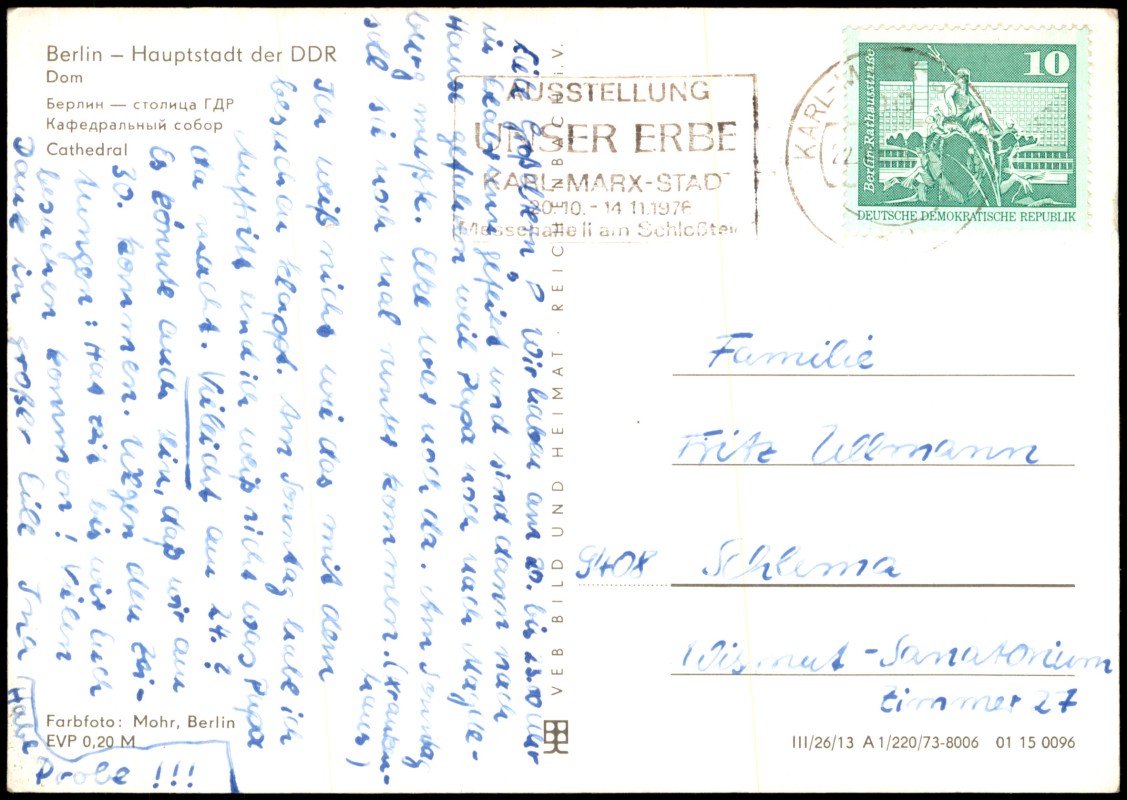 Berlin – Hauptstadt der DDR
Dom
Берлин — столица ГДР
Кафедральный собор
Cathedral
Liebe Großeltern, Wir haben am 20. bis 23.00 Uhr
in gefeiert und sind dann nach
Hause gefahren weil Papa noch nach Magde-
burg mußte. Elke war noch da. Am Sonntag
soll sie noch mal runter kommen. (Kranken-
haus)
Ich weiß nicht wie das mit dem
besuchen klappt. Am Sonntag habe ich
Auftritt und ich weiß nicht was Papa
da macht. Vileicht am 24.?
Es könnte auch sein, daß wir am
30. kommen. Wegen den Zei-
tungen: Hat Zeit bis wir Euch
besuchen kommen! Vielen
Dank in großer Eile Ina
Habe
Probe !!!
Farbfoto: Mohr, Berlin
EVP 0,20 M
VEB BILD UND HEIMAT · REICHENBACH i. V.
AUSSTELLUNG
UNSER ERBE
KARL-MARX-STADT
20.10. - 14.11.1976
Messehalle II am Schloßteich
KARL-M
22.
10
Berlin-Rathausstraße
DEUTSCHE DEMOKRATISCHE REPUBLIK
Familie
Fritz Ullmann
9408 Schlema
Wismut-Sanatorium
Zimmer 27
III/26/13 A 1/220/73-8006 01 15 0096